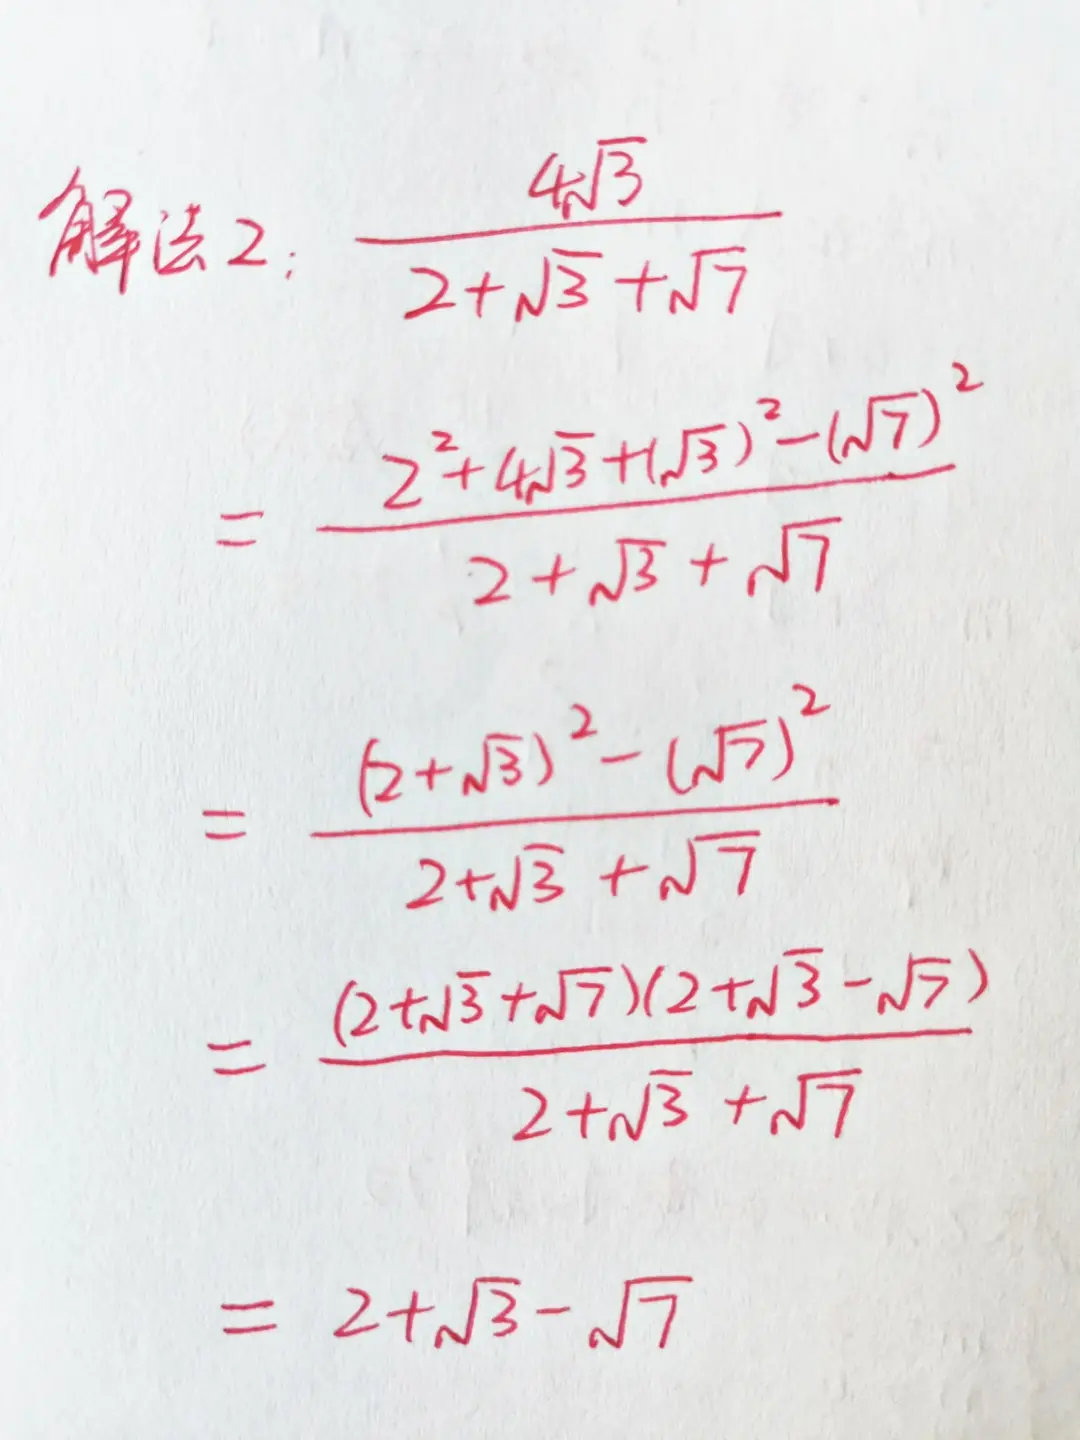 解法2: 4√3
2+√3+√7
= 2²+4√3+(√3)²-(√7)²
2+√3+√7
= (2+√3)²-(√7)²
2+√3+√7
= (2+√3+√7)(2+√3-√7)
2+√3+√7
= 2+√3-√7